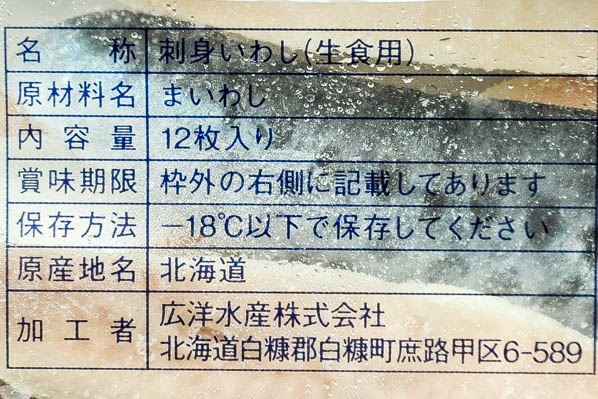 名称 刺身いわし(生食用)
原材料名 まいわし
内容量 12枚入り
賞味期限 枠外の右側に記載してあります
保存方法 −18℃以下で保存してください
原産地名 北海道
加工者 広洋水産株式会社
北海道白糠郡白糠町庶路甲区6-589